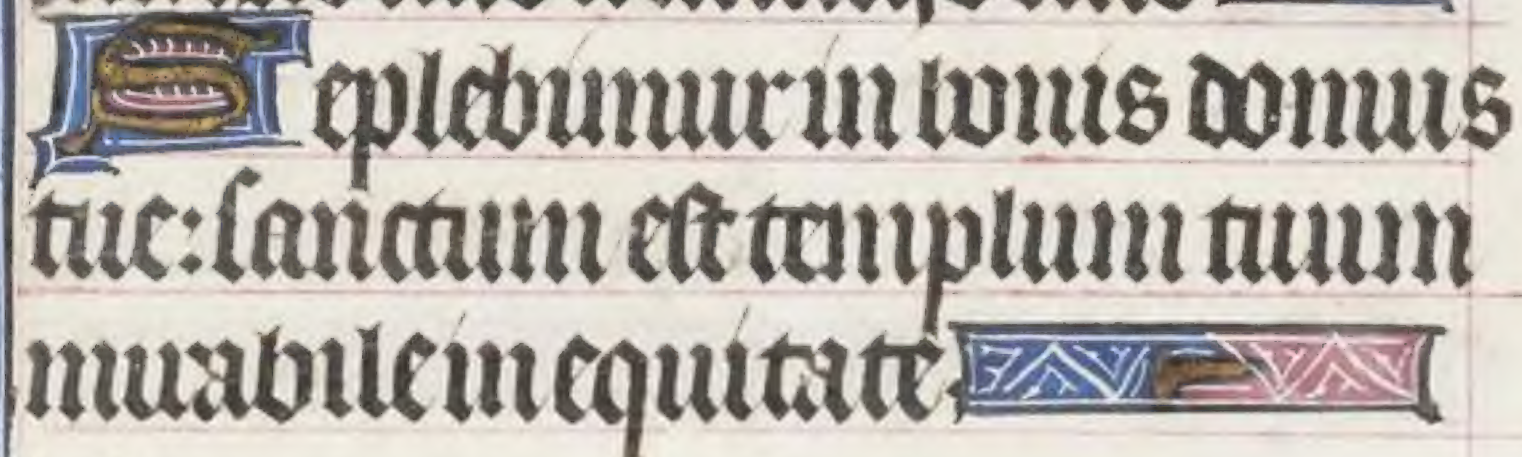 Seplebimur in bonis domus
tue: sanctum est templum tuum
mirabile in equitate.